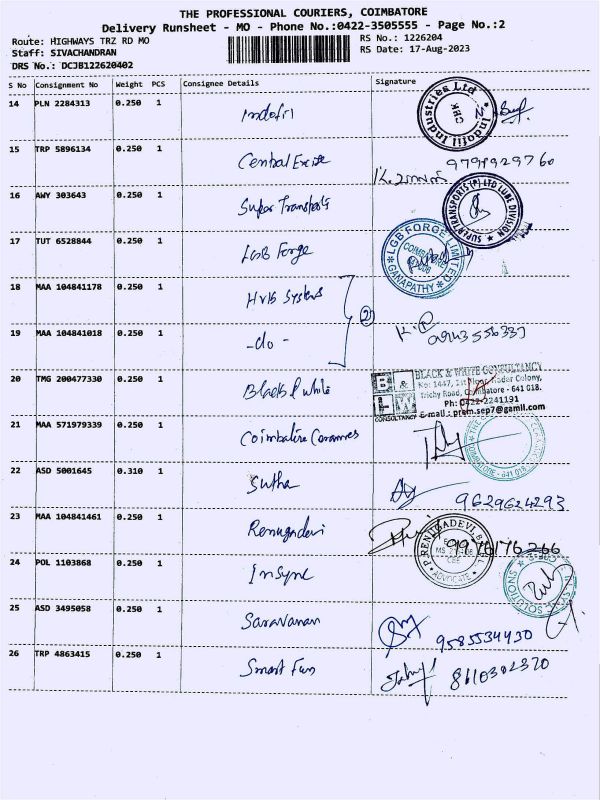 THE PROFESSIONAL COURIERS, COIMBATORE
Delivery Runsheet - MO - Phone No.:0422-3505555 - Page No.:2
Route: HIGHWAYS TRZ RD MO
RS No.: 1226204
Staff: SIVACHANDRAN
RS Date: 17-Aug-2023
DRS No.: DCJB122620402
S No Consignment No Weight PCS Consignee Details Signature
14 PLN 2284313 0.250 1 Indofil
Indofil Industries Ltd
CBK
15 TRP 5896134 0.250 1 Central Excise
16 AWY 303643 0.250 1 Super Transports
SUPER TRANSPORTS (P) LTD LUBE DIVISION
17 TUT 6528844 0.250 1 LGB Forge
LGB FORGE LIMITED
COIMBATORE
GANAPATHY
18 MAA 104841178 0.250 1 HVIS Systems
(2)
19 MAA 104841018 0.250 1 -do-
20 TMG 200477330 0.250 1 Black & White
B & W CONSULTANCY
BLACK & WHITE CONSULTANCY
No: 1447, 1st Floor, Nadar Colony,
Trichy Road, Coimbatore - 641 018.
Ph: 0422-2241191
E-mail : prem.sep7@gamil.com
21 MAA 571979339 0.250 1 Coimbatore Ceramics
COIMBATORE - 641 018
22 ASD 5001645 0.310 1 Sutha
9629624293
23 MAA 104841461 0.250 1 Renugadevi
P.RENUGADEVI, B.A.,B.L
ADVOCATE
24 POL 1103868 0.250 1 InSync
25 ASD 3495058 0.250 1 Saravanan
9585534430
26 TRP 4863415 0.250 1 Smart Fun
8110302370